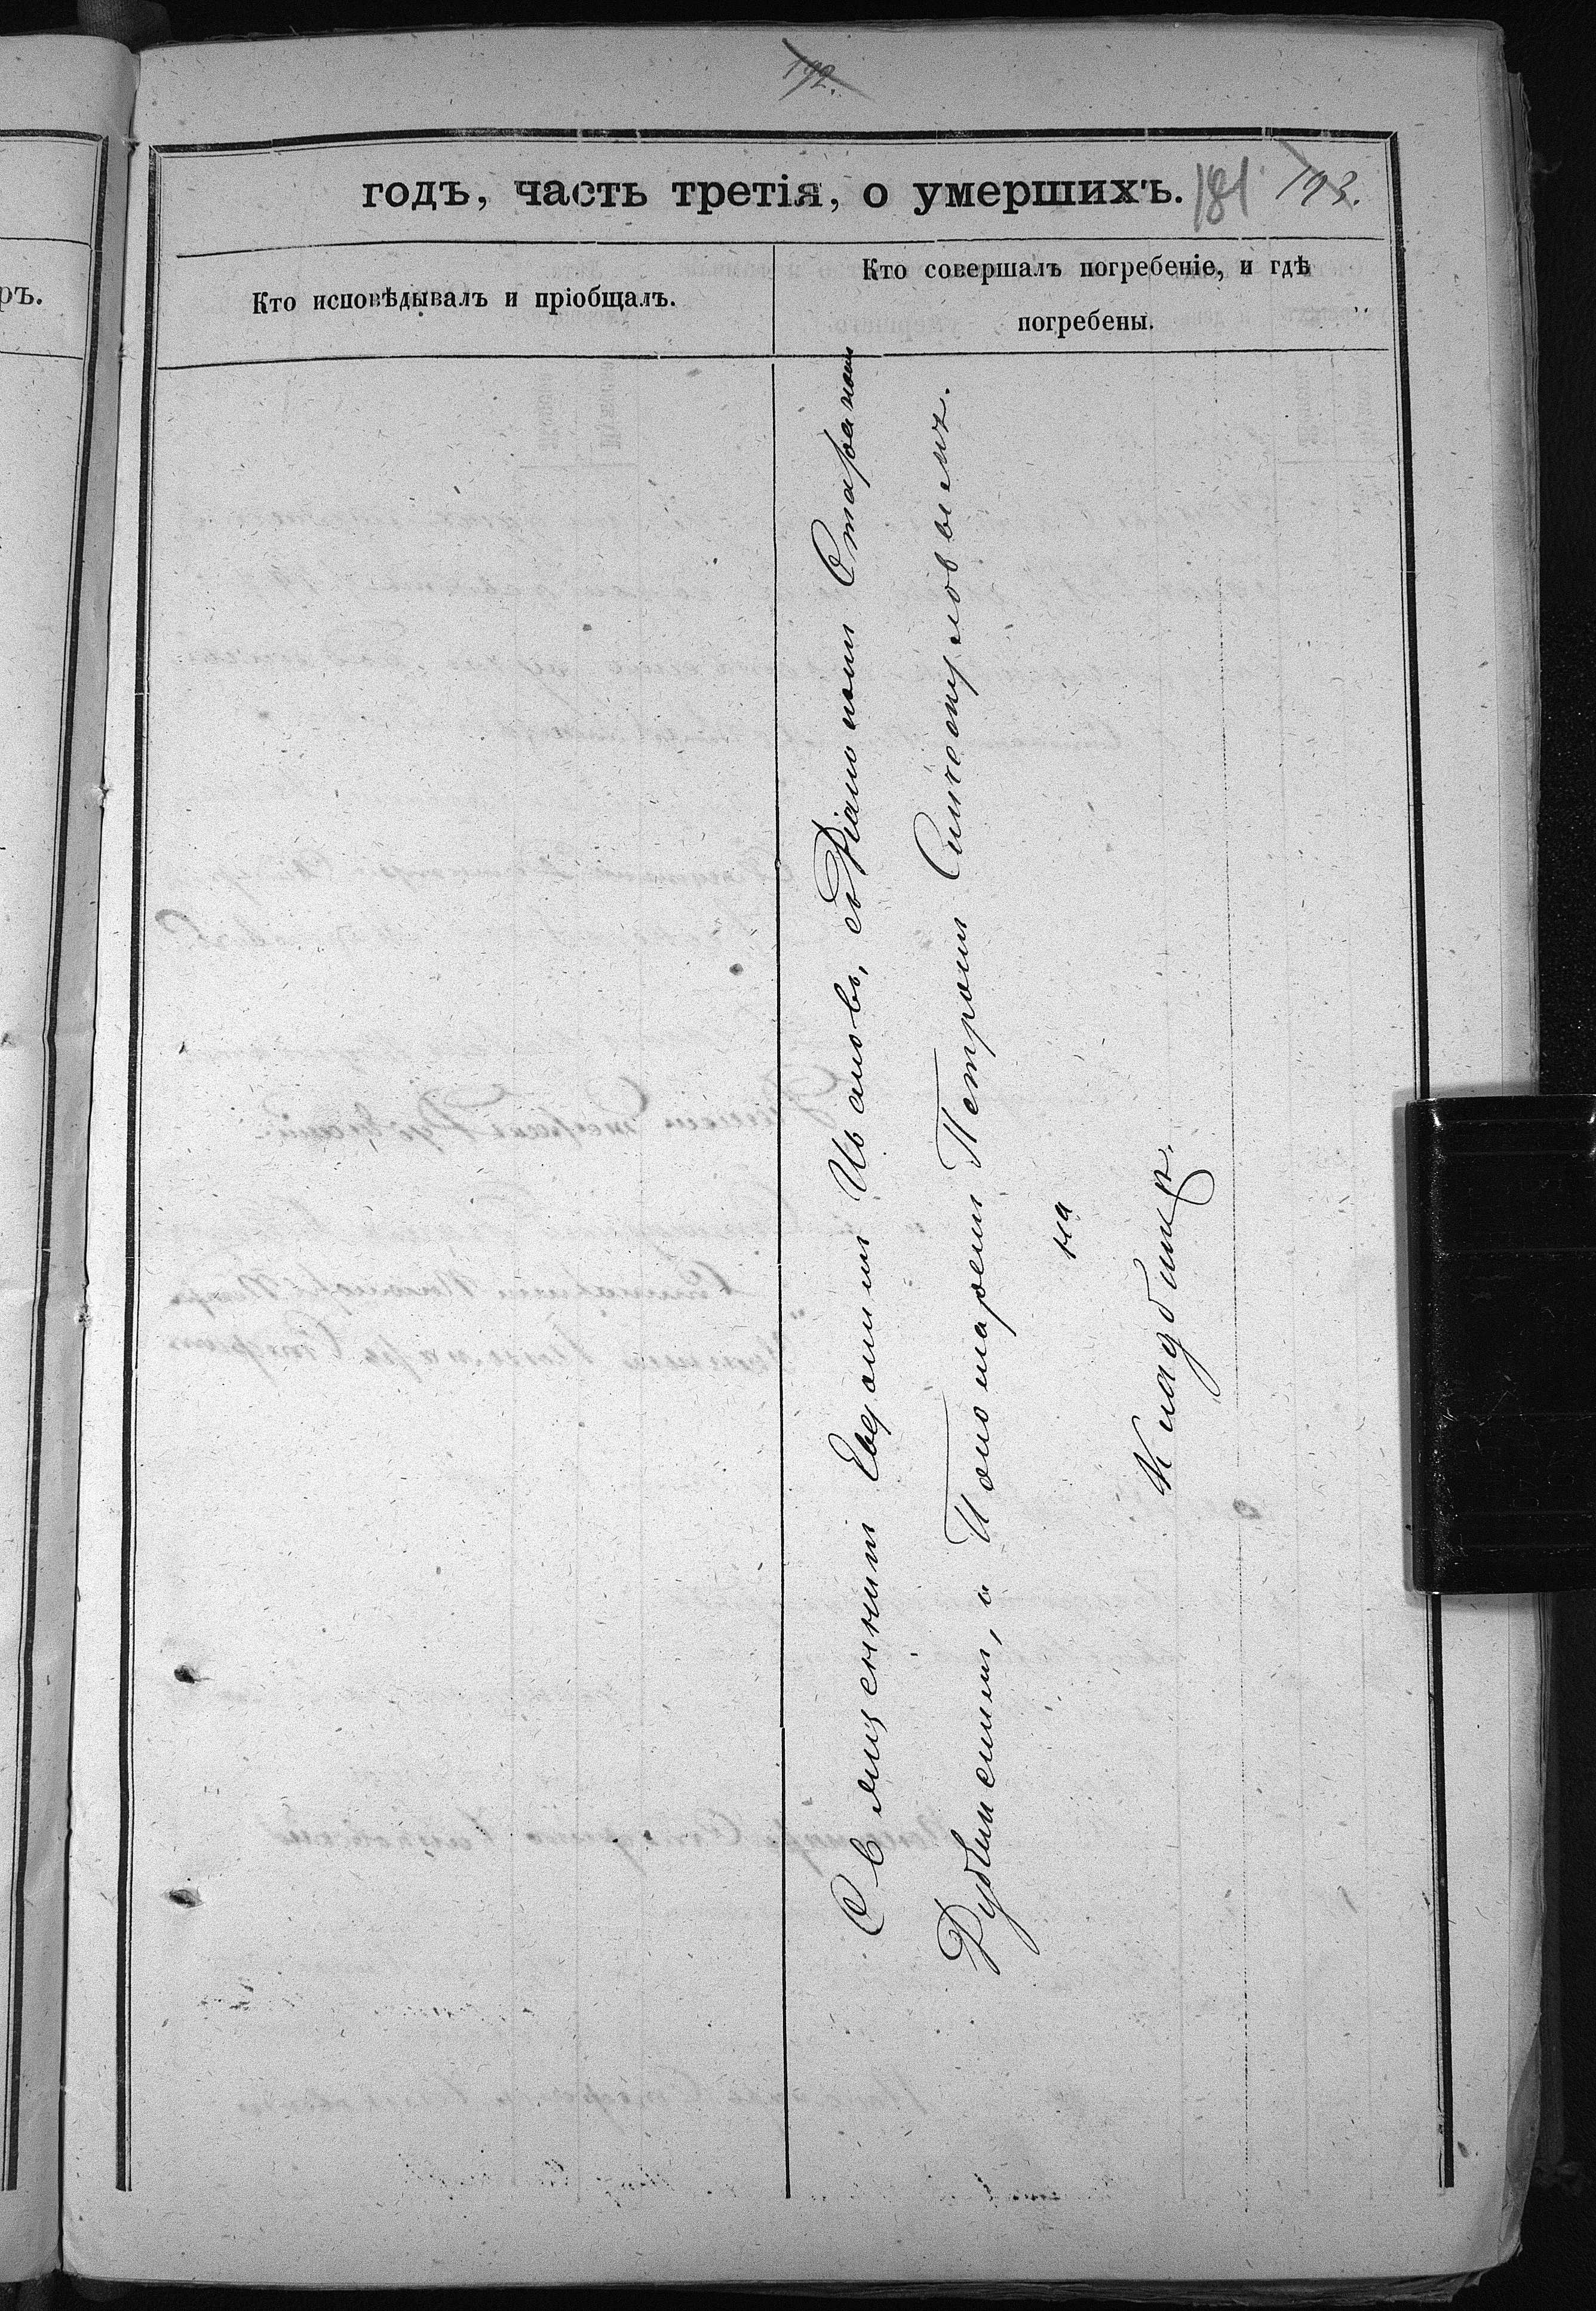 192.
годъ, часть третія, о умершихъ. 181 193.
Кто исповѣдывалъ и пріобщалъ.
Кто совершалъ погребеніе, и гдѣ
погребены.
ръ.
Священник Евфимий Иванов, с Діаконом Стефаном
Рубинским, и Пономарем Петром
на
Кладбищѣ.